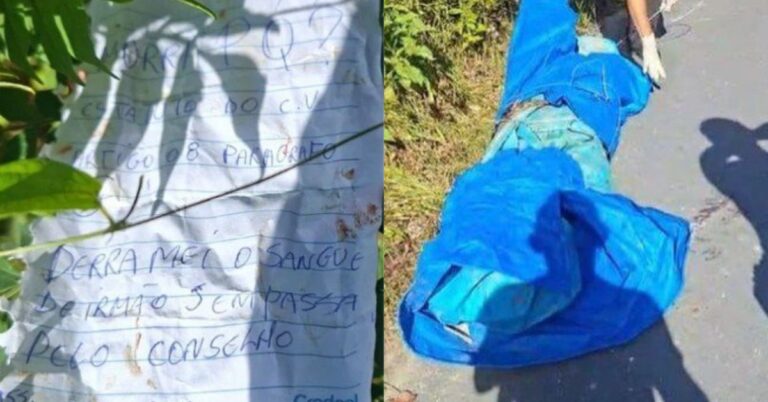 MORRI PQ?
ESTATUTO DO C.V
ARTIGO 08 PARAGRAFO
DERRAMEI O SANGUE
DE IRMÃO SEM PASSA
PELO CONSELHO
Credeal